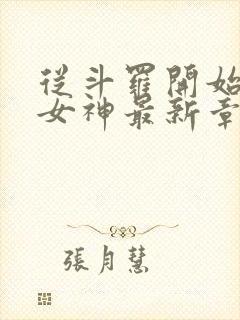 從斗羅開始
女神最新章
張月慧